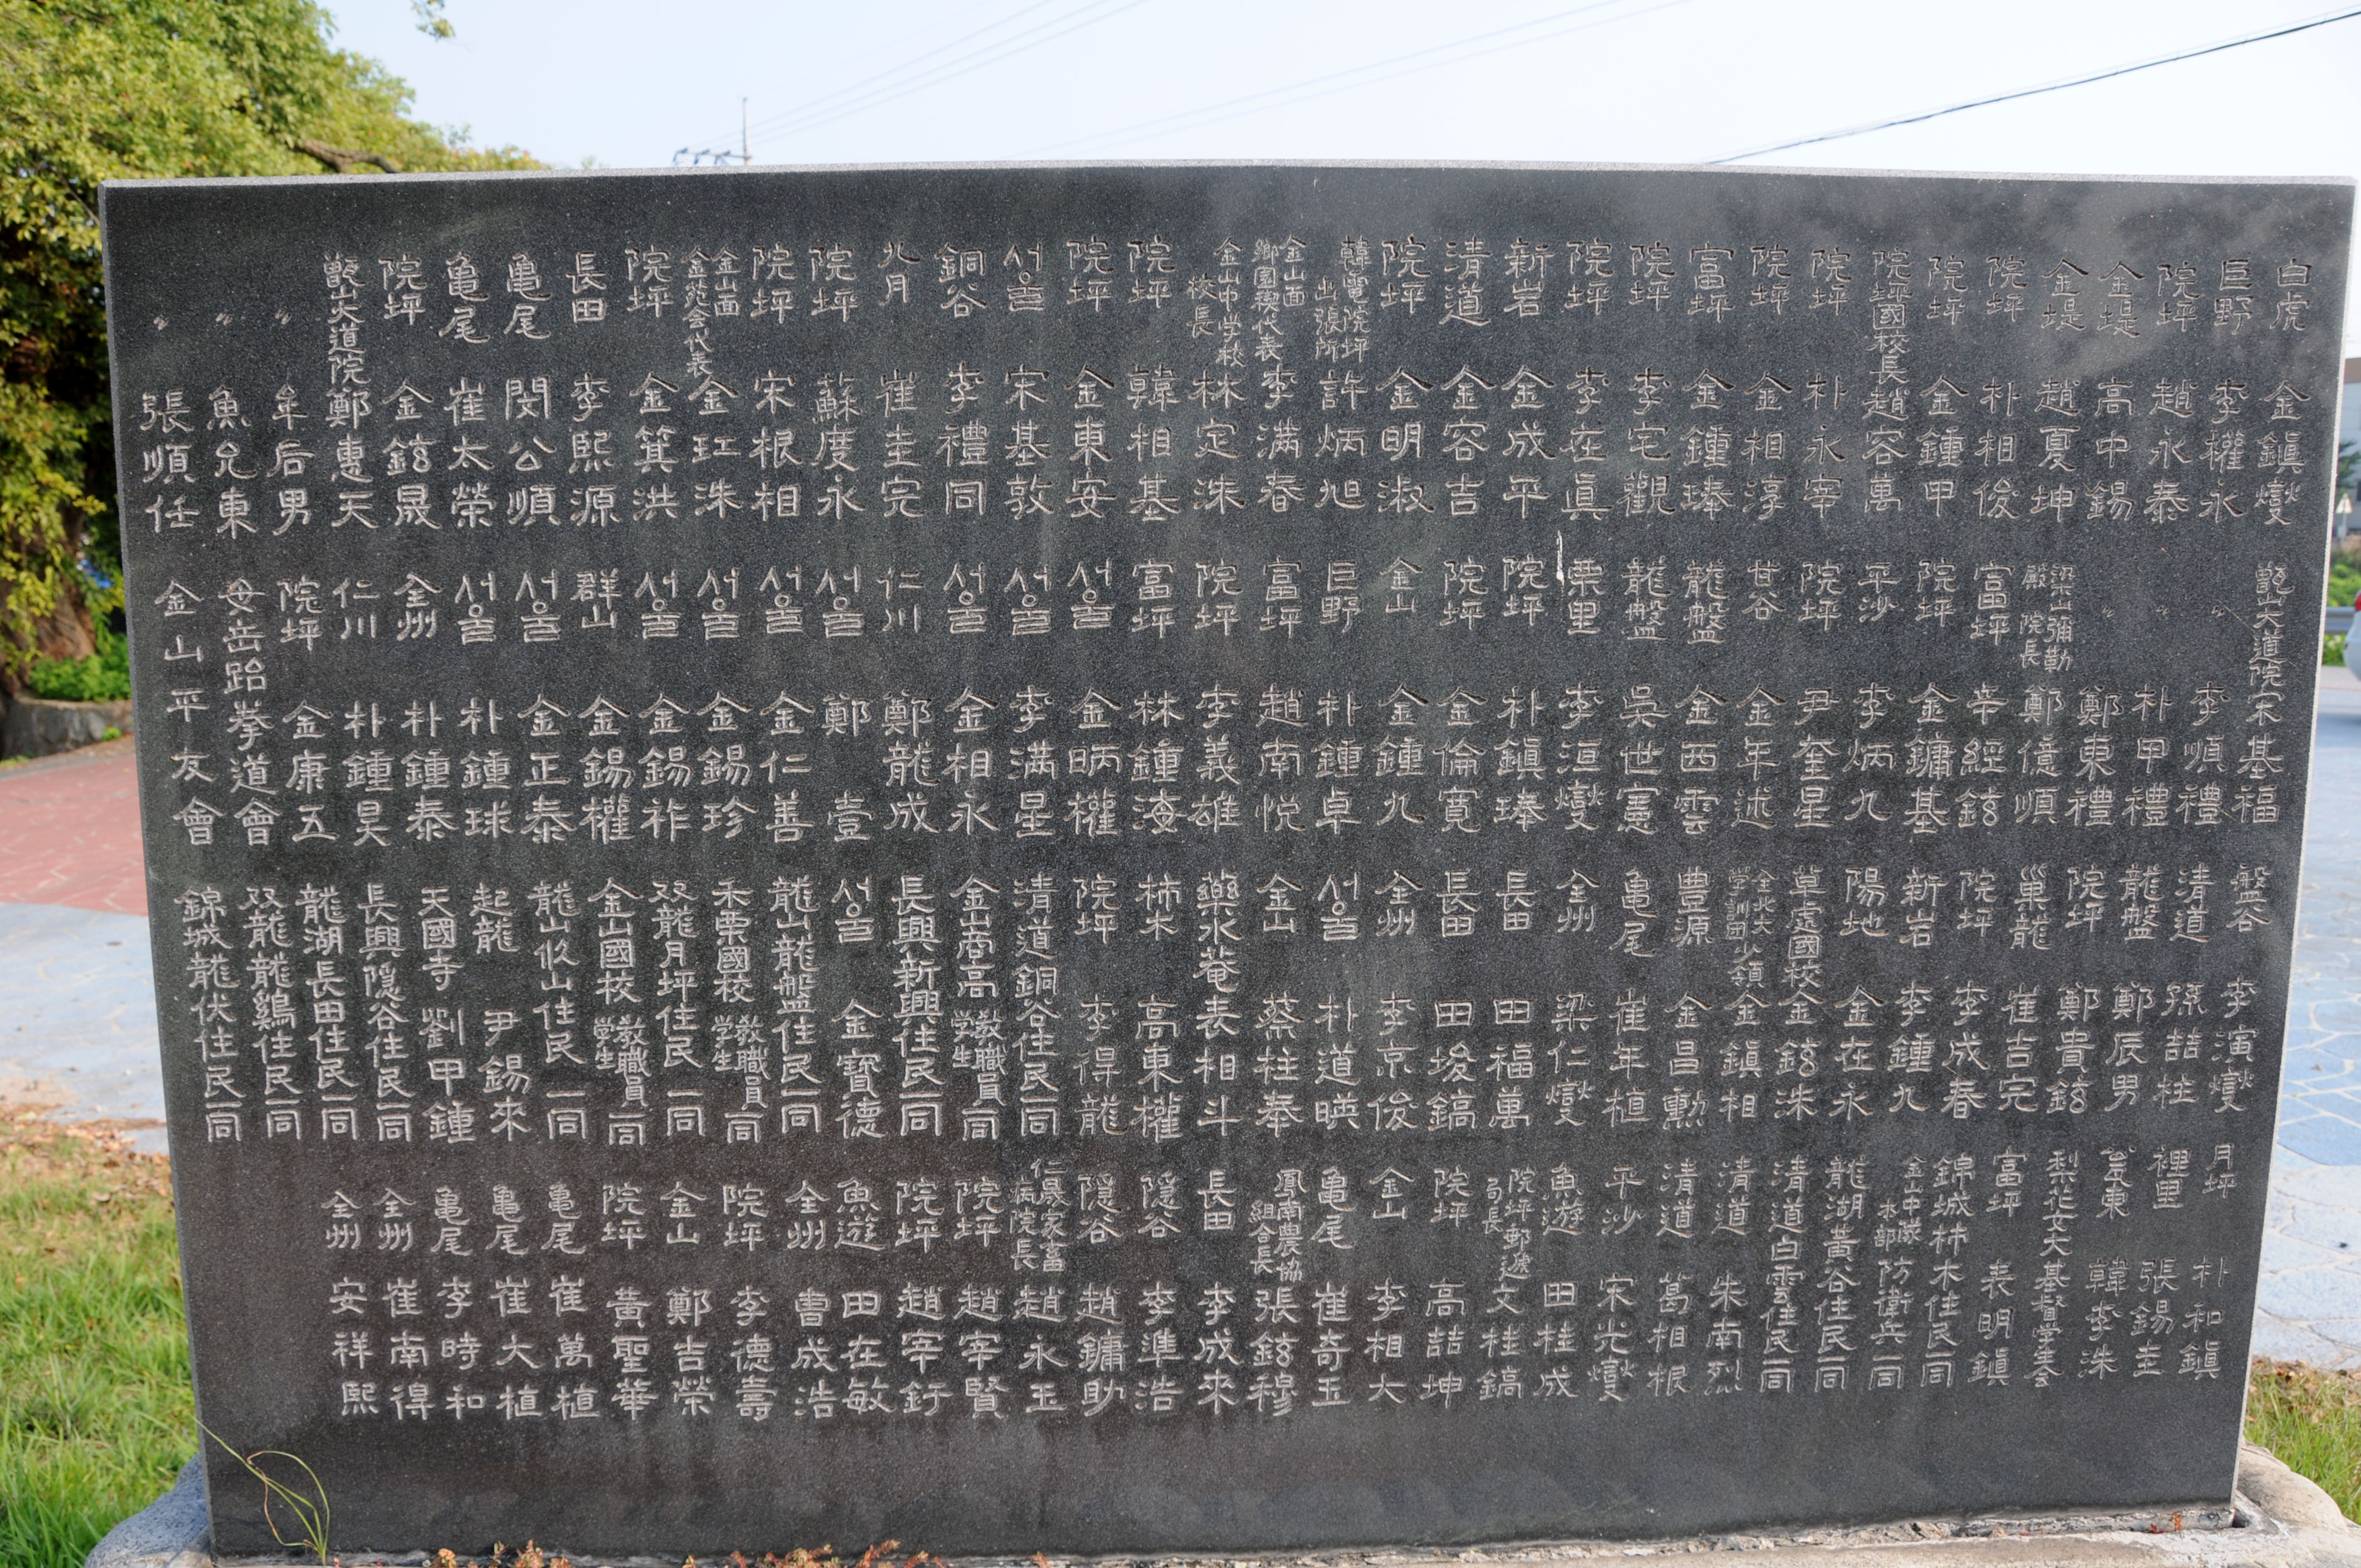 白虎 金鎭燮
巨野 李權永
院坪 趙永泰
金堤 高中錫
金堤 趙夏坤
院坪 朴相俊
院坪 金鍾甲
院坪國校長 趙容萬
院坪 朴永宰
院坪 金相淳
富坪 金鍾琫
院坪 李宅觀
院坪 李在眞
新岩 金成平
清道 金容吉
院坪 金明淑
韓電院坪出張所 許炳旭
金山面鄕園稧代表 李滿春
金山中学校校長 林定洙
院坪 韓相基
院坪 金東安
서울 宋基敦
銅谷 李禮同
九月 崔圭完
院坪 蘇度永
院坪 宋根相
金山面金苑会代表 金玒洙
院坪 金箕洪
長田 李熙源
亀尾 閔公順
亀尾 崔太榮
院坪 金鉉晟
甑山大道院 鄭惠天
〃 牟后男
〃 魚允東
〃 張順任
甑山大道院 宋基福
〃 李順禮
〃 朴甲禮
〃 鄭東禮
梁山彌勒殿院長 鄭億順
富坪 辛經鉉
院坪 金鏞基
平沙 李炳九
院坪 尹奎星
甚谷 金年述
龍盤 金西雲
龍盤 吳世憲
栗里 李洹燮
院坪 朴鎭琫
院坪 金倫寛
金山 金鍾九
巨野 朴鍾卓
富坪 趙南悦
院坪 李義雄
富坪 林鍾海
서울 金昞權
서울 李滿星
서울 金相永
仁川 鄭龍成
서울 鄭壹
서울 金仁善
서울 金錫珍
서울 金錫祚
群山 金錫權
서울 金正泰
서울 朴鍾球
全州 朴鍾泰
仁川 朴鍾昊
院坪 金康五
母岳跆拳道會
金山平友會
盤谷 李演燮
清道 孫喆柱
龍盤 鄭辰男
院坪 鄭貴鉉
巢龍 崔吉完
院坪 李成春
新岩 李鍾九
陽地 金在永
草處國校 金鉉洙
全北大学訓団少領 金鎭相
豊源 金昌勳
亀尾 崔年植
全州 梁仁燮
長田 田福萬
長田 田埈鎬
全州 李京俊
서울 朴道暎
金山 蔡柱奉
藥水菴 表相斗
柿木 高東權
院坪 李得龍
清道銅谷住民一同
金山商高 教職員学生一同
長興新興住民一同
서울 金寶德
龍山龍盤住民一同
禾栗國校 教職員学生一同
双龍月坪住民一同
金山國校 教職員学生一同
龍山似山住民一同
起龍 尹錫來
天國寺 劉甲鍾
長興隠谷住民一同
龍湖長田住民一同
双龍龍鷄住民一同
錦城龍伏住民一同
月坪 朴和鎭
裡里 張錫圭
瓮東 韓李洙
梨花女大基督学生会
富坪 表明鎭
錦城柿木住民一同
金中隊本部 防衛兵一同
龍湖黃谷住民一同
清道白雲住民一同
清道 朱南烈
清道 葛相根
平沙 宋光燮
魚遊 田桂成
院坪郵遞局長 文桂鎬
院坪 高喆坤
金山 李相大
亀尾 崔奇玉
鳳南農協組合長 張鉉穆
長田 李成來
隠谷 李準浩
隠谷 趙鏞助
仁晟家畜病院長 趙永玉
院坪 趙宰賢
院坪 趙宰釪
魚遊 田在敏
全州 曺成浩
院坪 李德壽
金山 鄭吉榮
院坪 黃聖華
亀尾 崔萬植
亀尾 崔大植
亀尾 李時和
全州 崔南得
全州 安祥熙